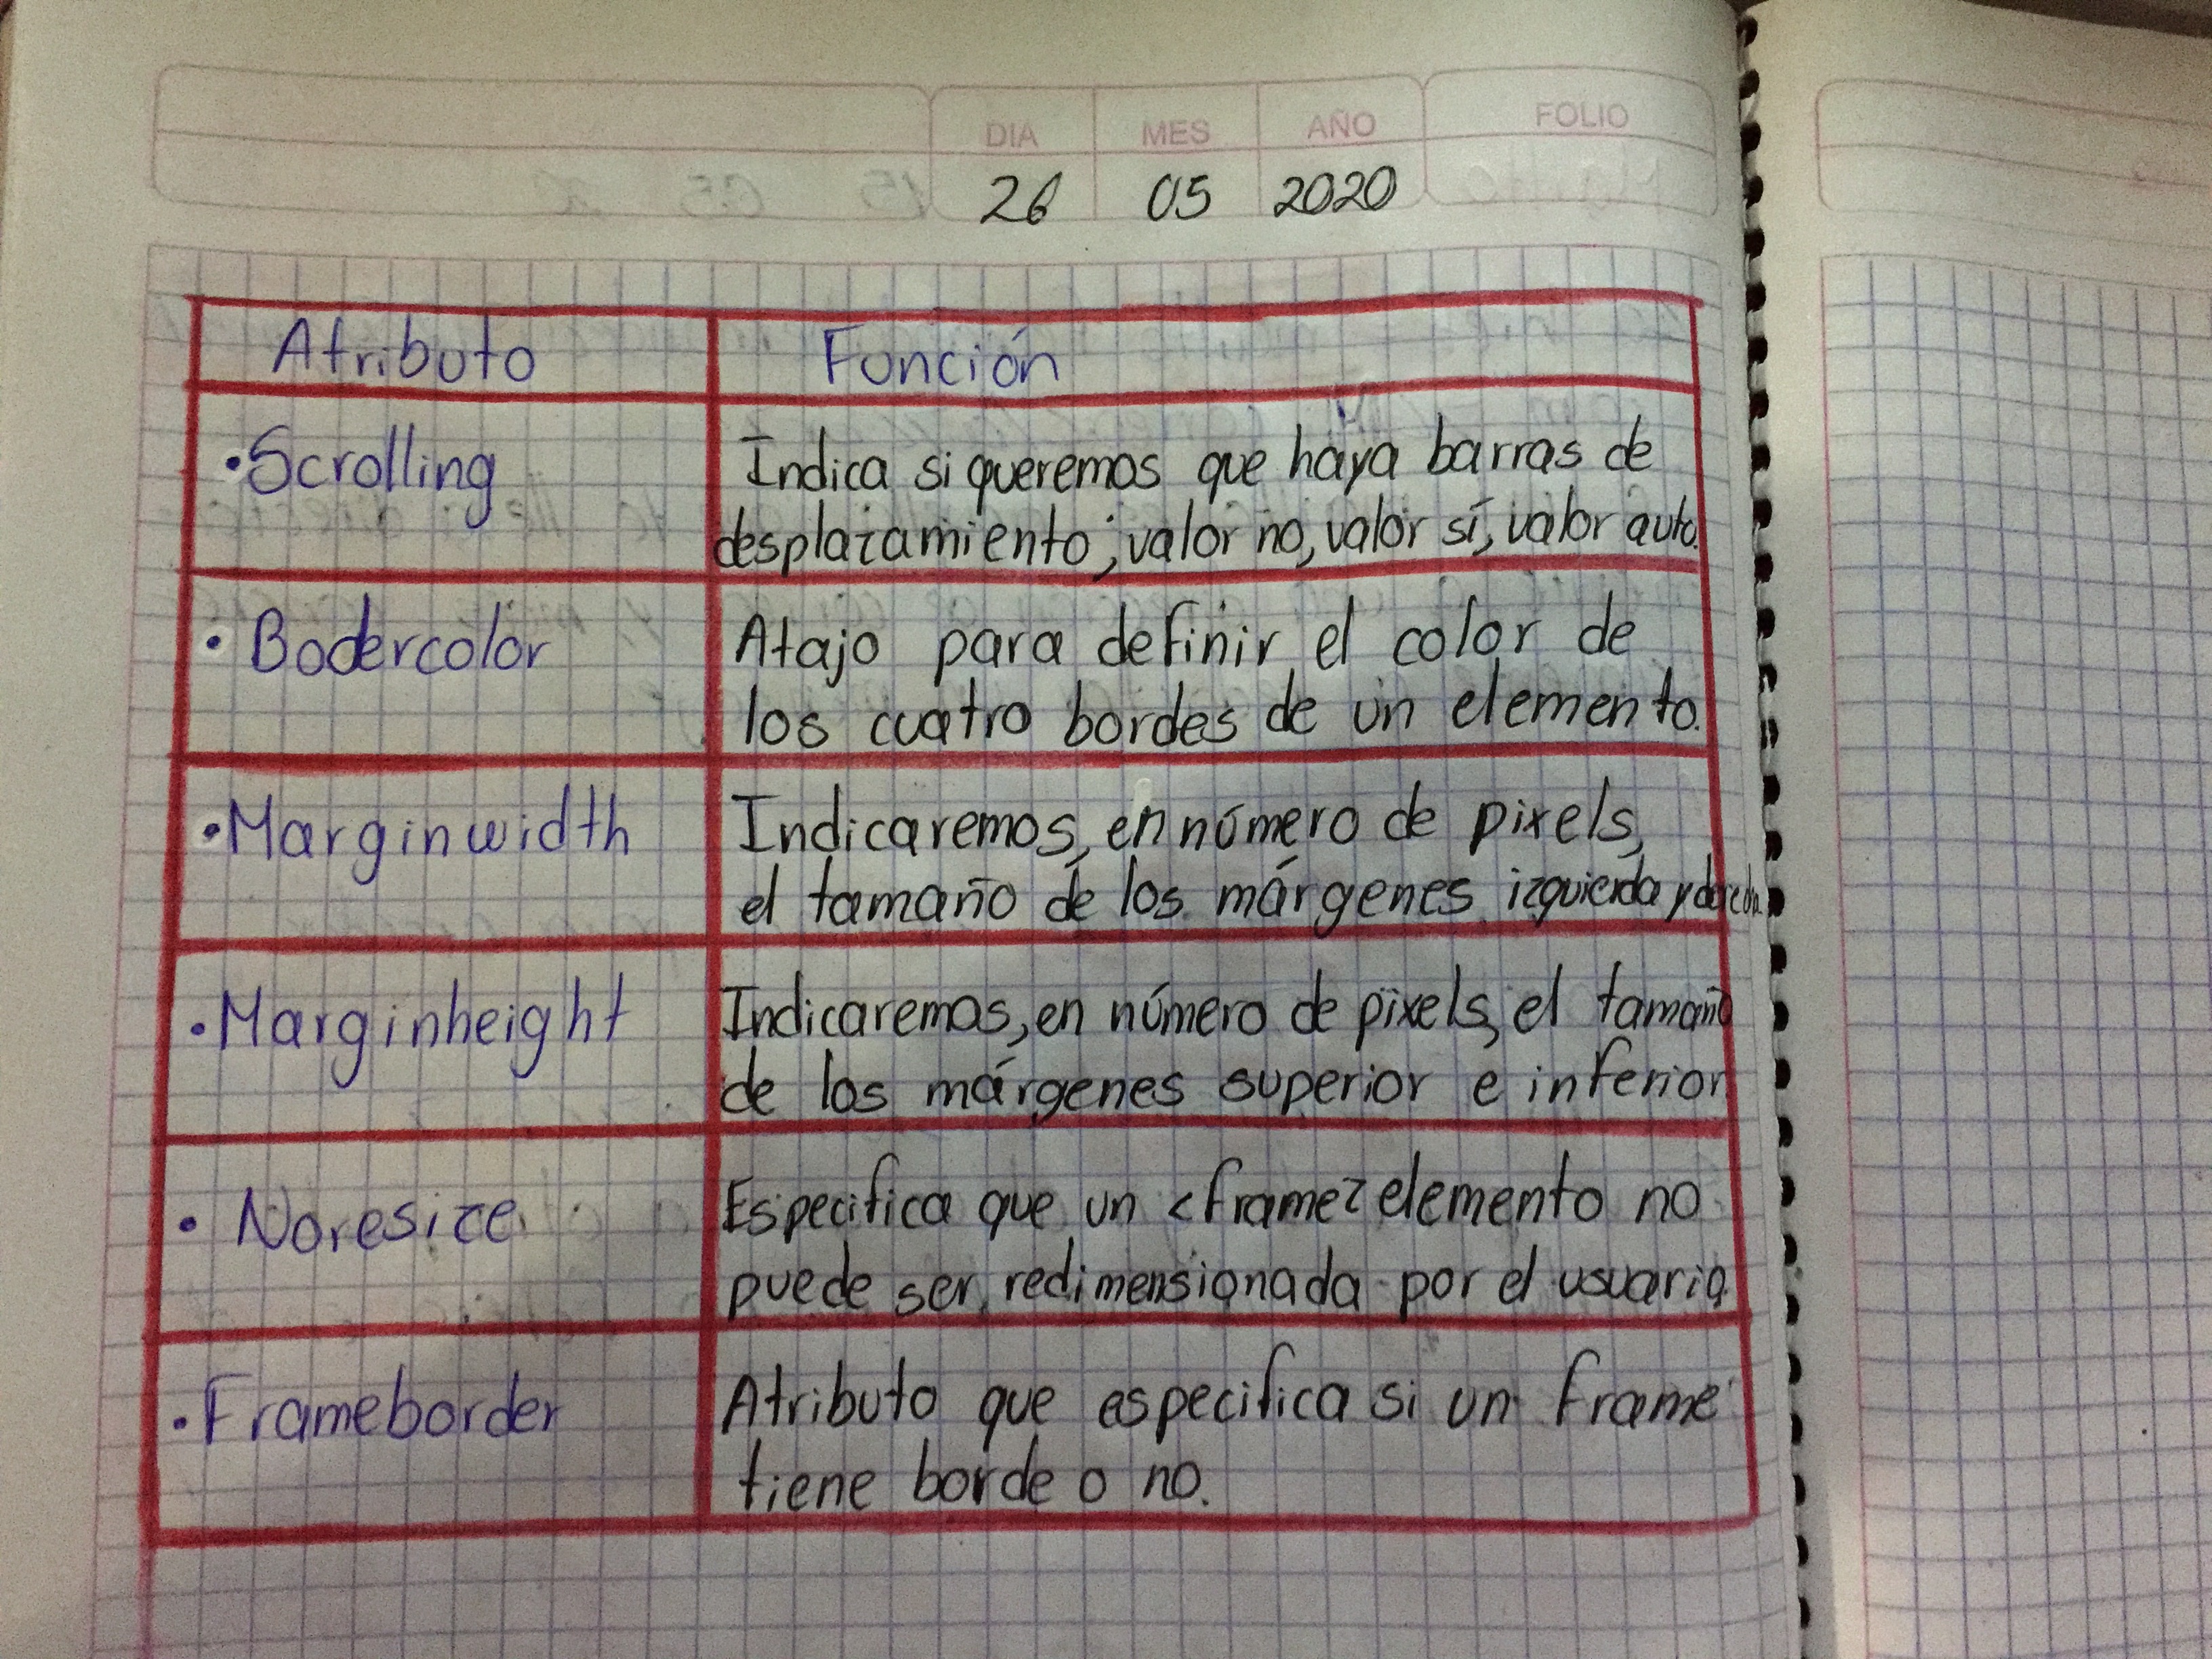 DIA MES AÑO FOLIO
26 05 2020
Atributo Función
•Scrolling
Indica si queremos que haya barras de
desplazamiento; valor no, valor sí, valor auto.
•Bodercolor
Atajo para definir el color de
los cuatro bordes de un elemento.
•Marginwidth
Indicaremos, en número de pixels,
el tamaño de los márgenes izquierda y derecha
•Marginheight
Indicaremos, en número de pixels, el tamaño
de los márgenes superior e inferior
•Noresize
Especifica que un <frame> elemento no
puede ser redimensionada por el usuario.
•Frameborder
Atributo que especifica si un frame
tiene borde o no.